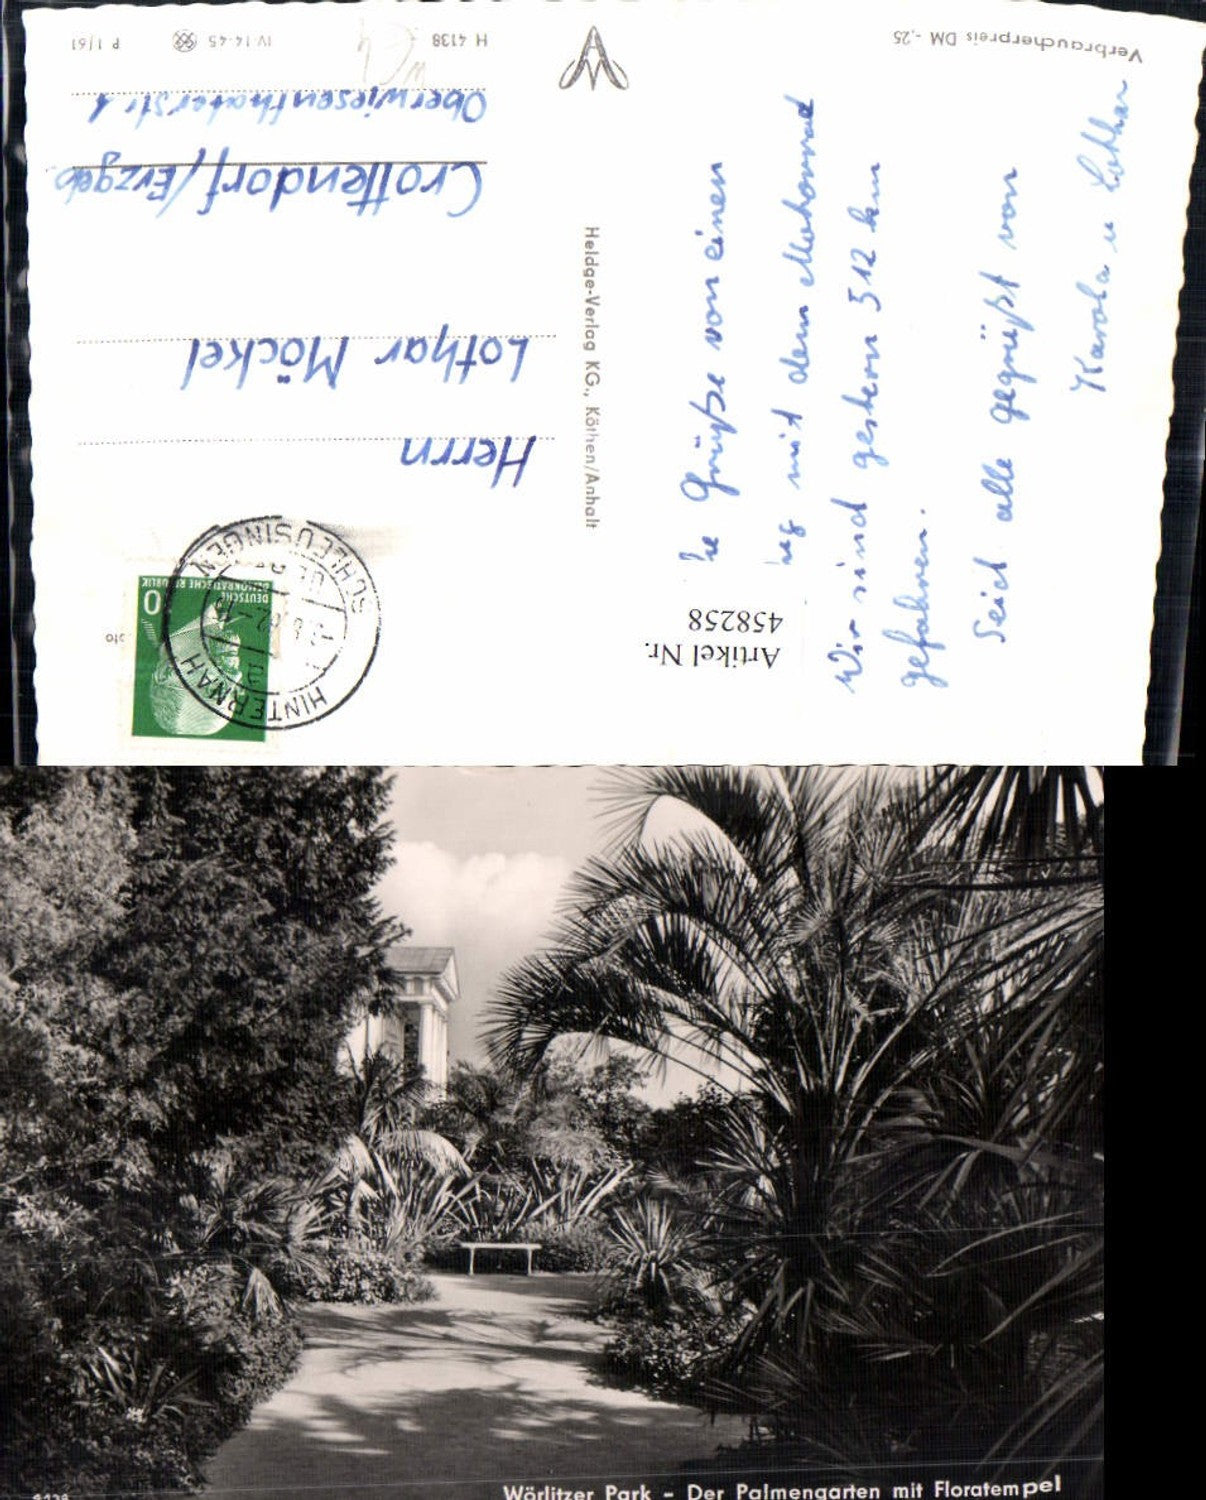 Verbraucherpreis DM -,25
H 4138
IV-14-45
P 1/61
Grüße von einen
mit dem Motorrad
Wir sind gestern 512 km
gefahren.
Seid alle gegrüßt von
Karola u Lothar
Artikel Nr.
458258
Heldge-Verlag KG., Köthen/Anhalt
DEUTSCHE
DEMOKRATISCHE REPUBLIK
10
SCHLEUSINGEN
HINTERNAH
Herrn
Lothar Möckel
Crottendorf/Erzgeb.
Oberwiesenthalerstr. 1
Wörlitzer Park - Der Palmengarten mit Floratempel